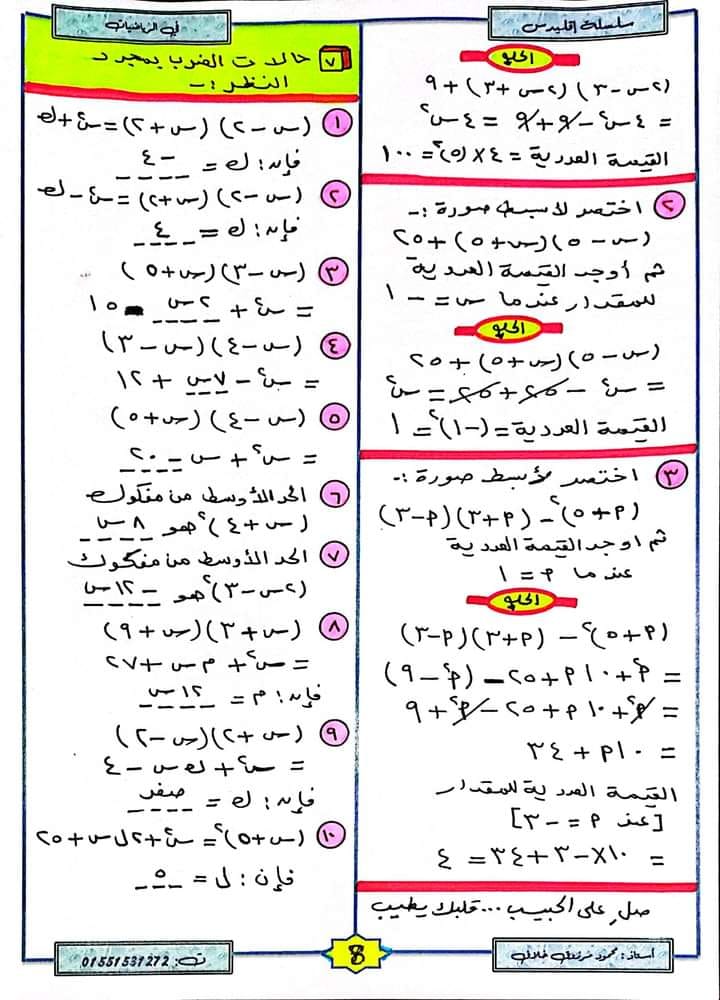 سلسلة إقليدس
في الرياضيات
الحل
(٢س-٣) (٢س+٣) + ٩
= ٤س² - ٩ + ٩ = ٤س²
القيمة العددية = ٤ × (٥)² = ١٠٠
٢ اختصر لأبسط صورة :-
(س-٥) (س+٥) + ٢٥
ثم أوجد القيمة العددية
للمقدار عندما س = -١
الحل
(س-٥) (س+٥) + ٢٥
= س² - ٢٥ + ٢٥ = س²
القيمة العددية = (-١)² = ١
٣ اختصر لأبسط صورة :-
(٥+م)² - (٣+م) (٣-م)
ثم اوجد القيمة العددية
عند ما م = ١
الحل
(٥+م)² - (٣+م) (٣-م)
= م² + ١٠م + ٢٥ - (م² - ٩)
= م² + ١٠م + ٢٥ - م² + ٩
= ١٠م + ٣٤
القيمة العددية للمقدار
[عند م = -٣]
= ١٠ × -٣ + ٣٤ = ٤
صلِ على الحبيب ... قلبك يطيب
٧ حالات الضرب بمجرد
النظر :-
١ (س-٢) (س+٢) = س² + ك
فإن : ك = -٤
٢ (س-٢) (س+٢) = س² - ك
فإن : ك = ٤
٣ (س-٣) (س+٥)
= س² + ٢س - ١٥
٤ (س-٤) (س-٣)
= س² - ٧س + ١٢
٥ (س-٤) (س+٥)
= س² + س - ٢٠
٦ الحد الأوسط من مفكوك
(س+٤)² هو ٨س
٧ الحد الأوسط من مفكوك
(٢س-٣)² هو -١٢س
٨ (س+٣) (س+٩)
= س² + م س + ٢٧
فإن : م = ١٢س
٩ (س+٢) (س-٢)
= س² + ك س - ٤
فإن : ك = صفر
١٠ (س+٥)² = س² + ٢ل س + ٢٥
فإن : ل = ٥
أستاذ : محمود
8
ت : 01551531272